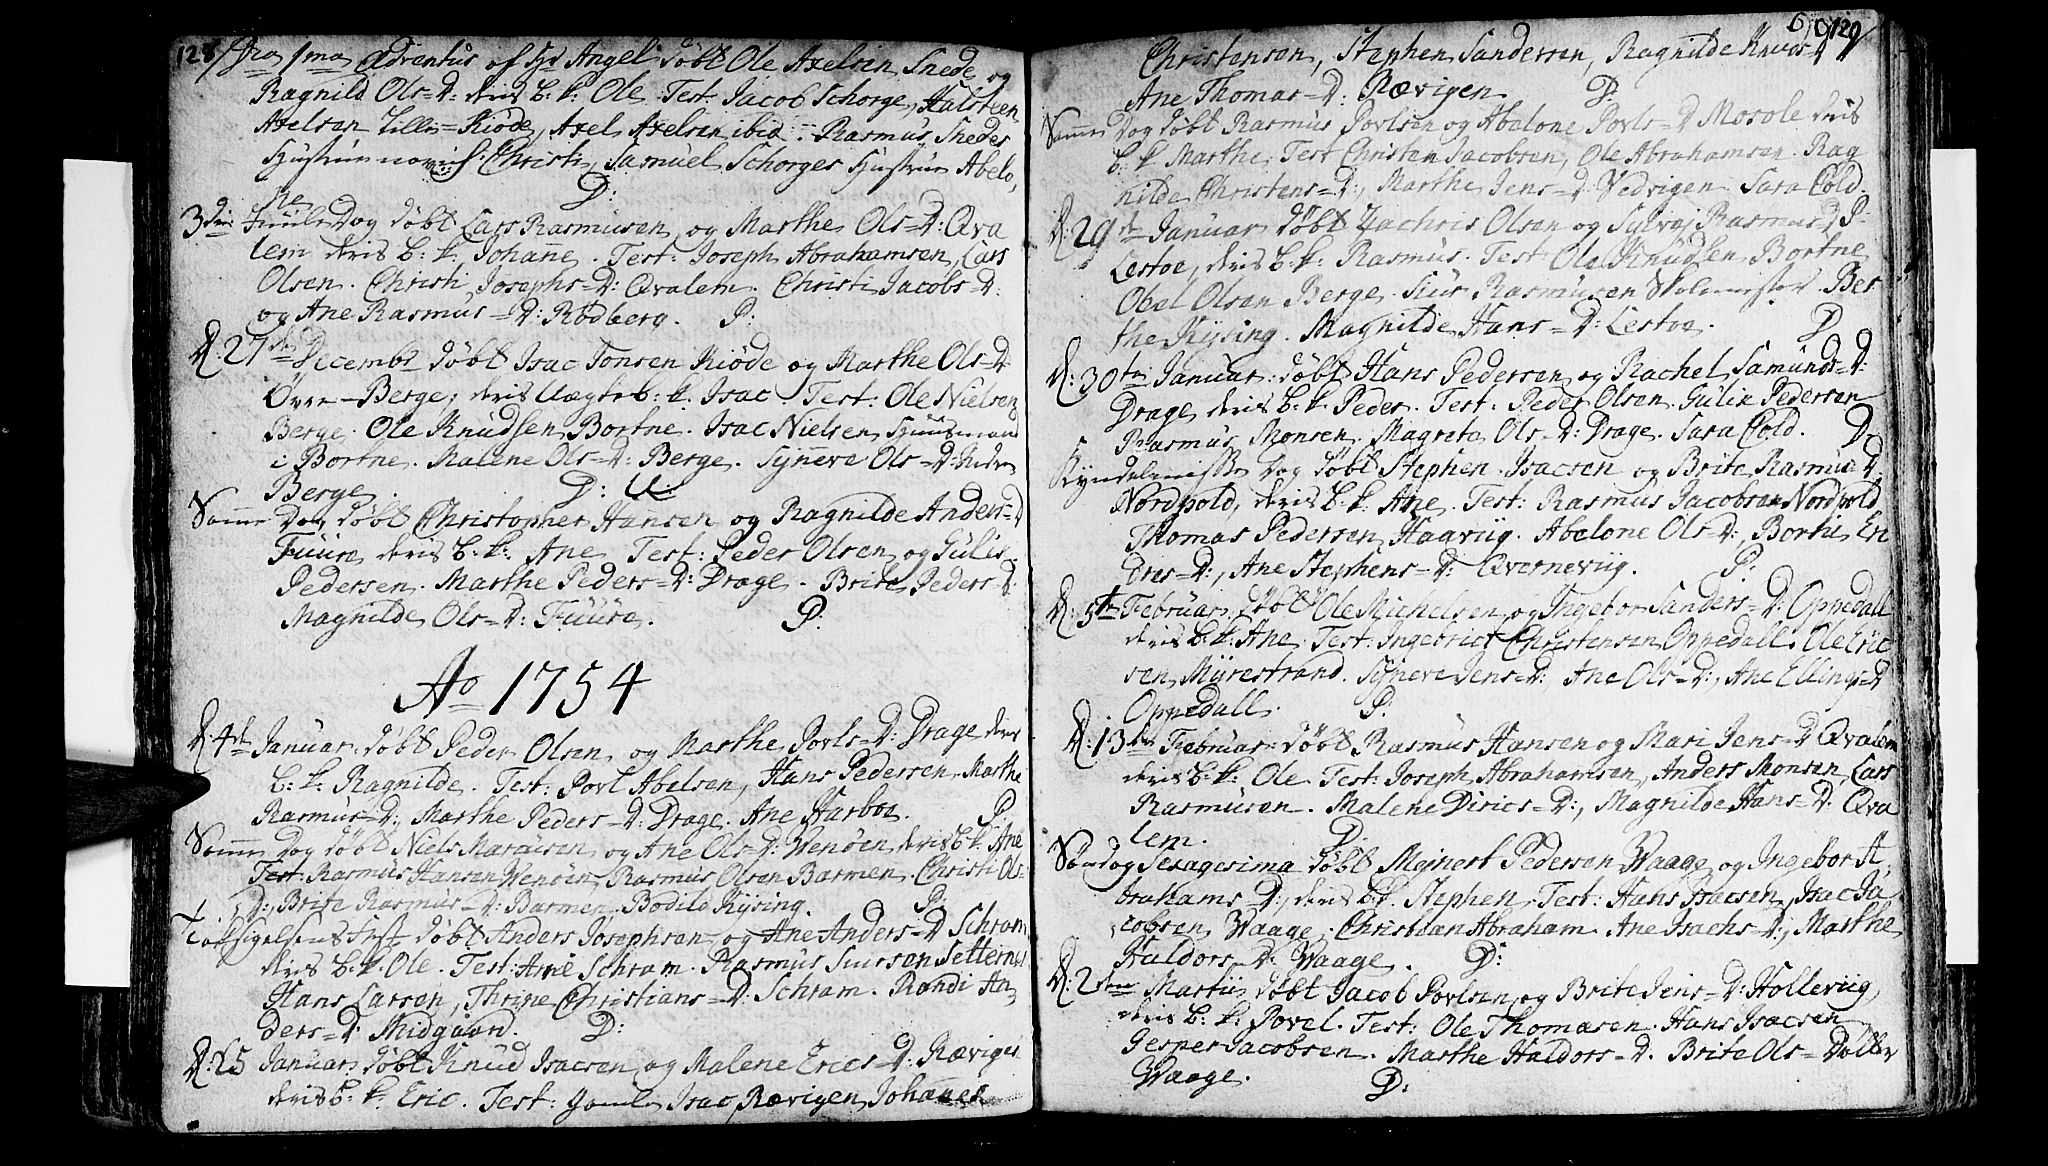 128
Dca 1ma Adventus af Hr Angel døbt Ole Axelsen Snede og
Ragnild Ols=D: deris b: k: Ole. Test: Jacob Schorge, Halsteen
Axelsen Lille=Kiøde, Axel Axelsen ibid: Rasmus Snedes
Hustrue Christi, Samuel Schorges Hustrue Abelo,
ne D:
3die Juule Dag døbt Lars Rasmusen og Marthe Ols=D: Qva
lem deris b: k: Johane. Test: Joseph Abrahamsen, Lars
Olsen. Christi Josephs=D: Qvalem. Christi Jacobs=D:
og Ane Rasmus=D: Rødberg. D:
D: 27de Decembr døbt Isac Tonsen Kiøde og Marthe Ols=D:
Øvre=Berge, deris Uægte b: k. Isac. Test: Ole Nielsen
Berge. Ole Knudsen Bortne. Isac Nielsen Huusmand
i Bortne. Malene Ols=D: Berge. Syneve Ols=D: Nedre
Berge. D: U:
Samme Dag døbt Christopher Hansen og Ragnilde Anders=D
Fuure deris b: k: Ane. Test: Peder Olsen og Gulic
Pedersen. Marthe Peders=D: Drage. Brite Peders=D:
Magnilde Ols=D: Fuure. D:
Ao 1754
D: 4de Januar: døbt Peder Olsen og Marthe Povls=D: Drage deris
b: k: Ragnilde. Test: Povl Abelsen, Hans Pedersen, Marthe
Rasmus=D:, Marthe Peders=D: Drage. Ane Harboe. D:
Samme Dag døbt Niels Marcusen og Ane Ols=D: Wenøen deris b: k: Ane
Test: Rasmus Hansen Wenøen, Rasmus Olsen Barmen. Christi Ols=
D:, Brite Rasmus=D: Barmen, Bodild Rysing. D:
Taksigelsens Fest døbt Anders Josephsen og Ane Anders=D Schram
deris b: k: Ole. Test: Arne Schram. Rasmus Siursen Setternes
Hans Larsen, Thrine Christians=D: Schram. Randi An,
ders=D: Midgaard. D:
D: 25 Januar døbt Knud Isacsen og Malene Erics=D: Rævigen
deris b: k: Eric. Test: Gamle Isac Rævigen, Johannes
129
Christensen, Stephen Sandersen, Ragnilde Knuds=D
Ane Thomas=D: Rævigen D:
Samme Dag døbt Rasmus Povlsen og Abelone Povls=D Mosole deris
b: k: Marthe. Test Christen Jacobsen, Ole Abrahamsen. Rag
nilde Christens=D:, Marthe Jens=D: Vedvigen Sara Cold.
D: 29de Januar døbt Zachris Olsen og Sylvaj Rasmus D:
Lestoe, deris b: k: Rasmus. Test: Ole Knudsen Bortne
Obel Olsen Berge. Siur Rasmusen Skolemester Ber
the Rysing. Magnilde Hans=D: Lestoe. D
D: 30te Januar: døbt Hans Pedersen og Rachel Samunds=D:
Drage deris b: k: Peder. Test: Peder Olsen. Gulic Pedersen
Rasmus Monsen. Magrete Ols=D: Drage. Sara Cold. D.
Kyndelmisse Dag døbt Stephen Isacsen og Brite Rasmus D:
Nordpold, deris b: k: Ane. Test: Rasmus Jacobsen Nordpold
Thomas Pedersen Haaviig. Abelone Ols=D:, Borthi Eri
Ane Stephens=D: Qverneviig. D:
D: 5te Februar: døbt Ole Michelsen og Ingebor Sanders=D: Oppedall
deris b: k: Ane. Test: Ingebrict Christensen Oppedall: Ole Eric
sen Myrestrand. Syneve Jens=D: Ane Ols=D:, Ane Ellings=D
Oppedall. D:
D: 13de Februar: døbt Rasmus Hansen og Mari Jens=D Qvalem
deris b: k: Ole. Test: Joseph Abrahamsen, Anders Monsen, Lars
Rasmusen. Malene Dirics=D:, Magnilde Hans=D: Qva
lem. D:
Søndag Sexagesima døbt Mejnert Pedersen Waage og Ingebor A,
brahams D:, deris b: k: Stephen. Test: Hans Isacsen, Isac Ja,
cobsen Waage, Christian Abraham. Ane Isachs=D:, Marthe
Haldors=D: Waage. D:
D: 2den Martii døbt Jacob Povlsen og Brite Jens=D: Holleviig,
deris b: k: Povel. Test: Ole Thomasen. Hans Isacsen
Gesper Jacobsen. Marthe Haldors=D: Brite Ols=Datter
Waage. D: